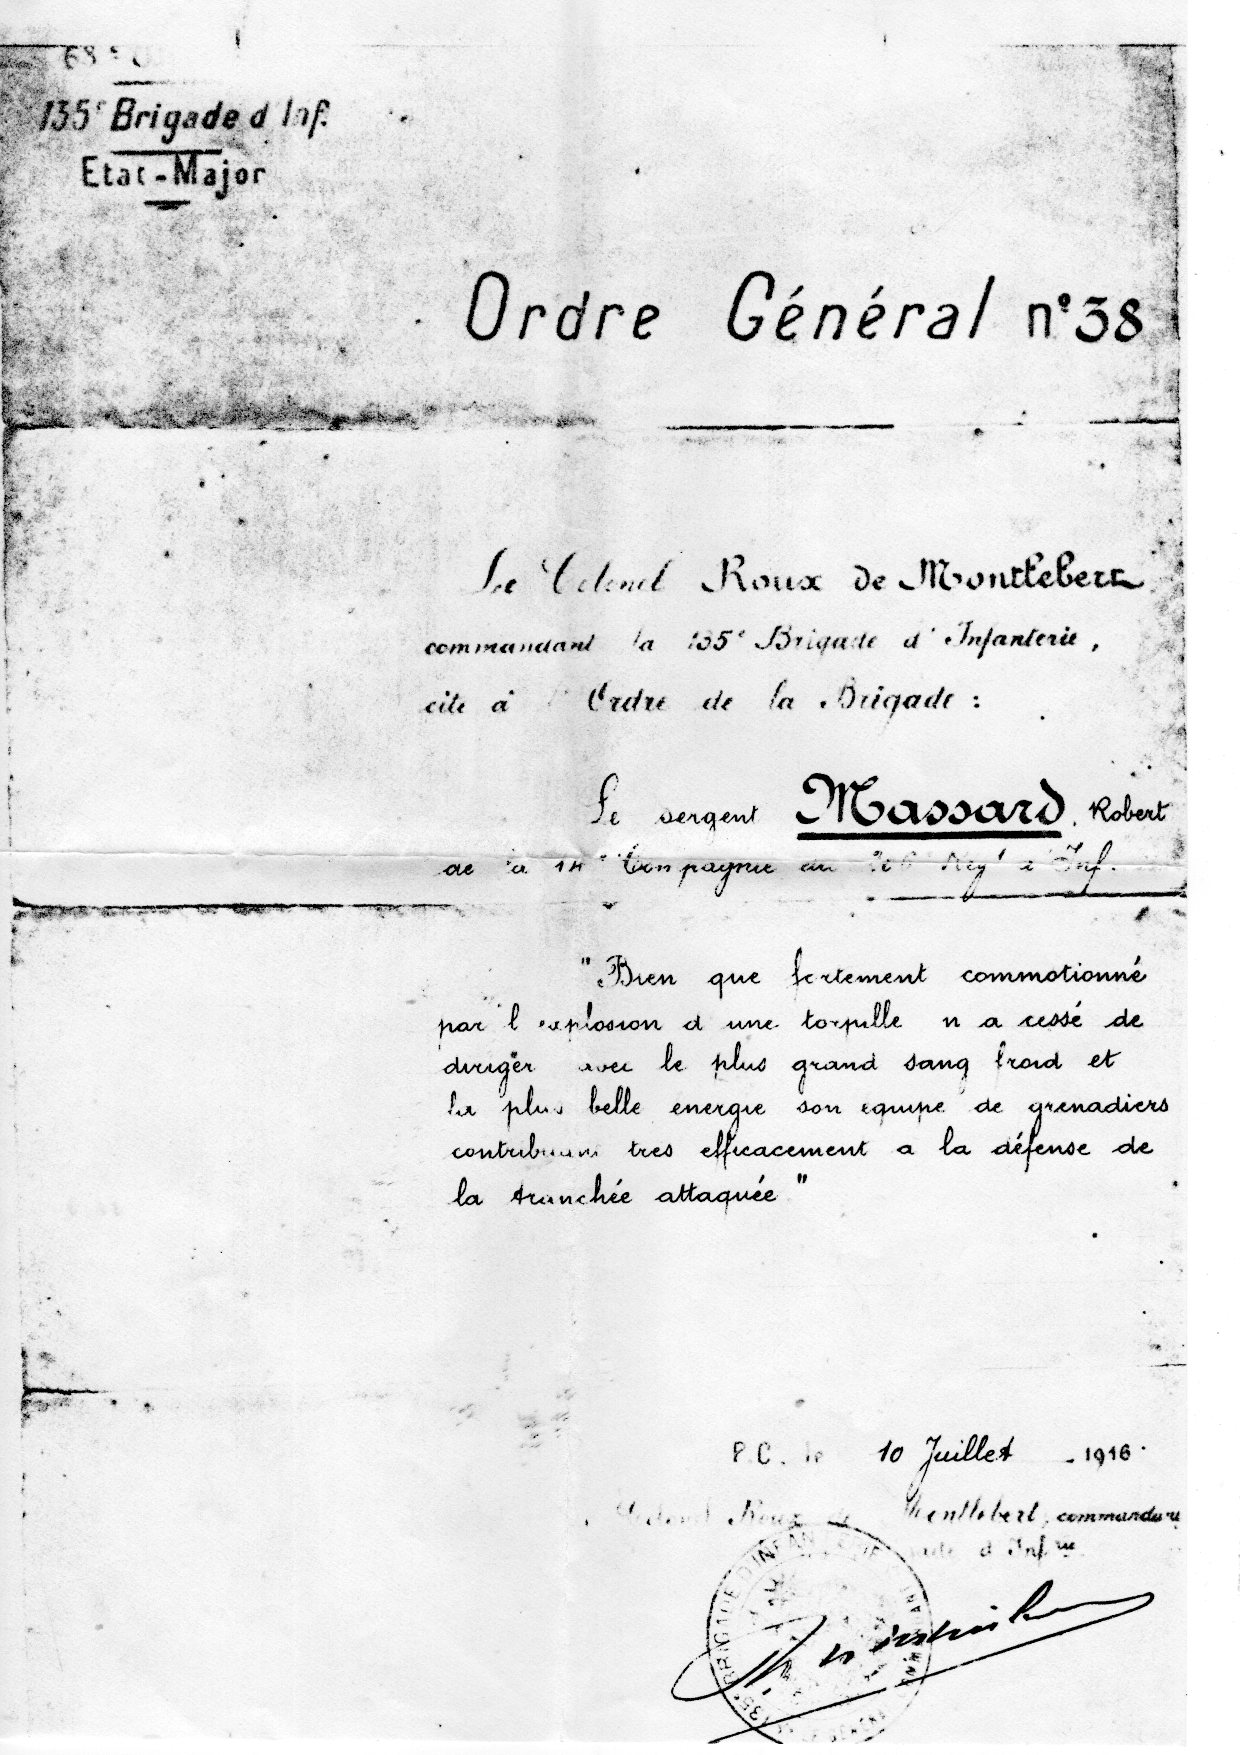 135e Brigade d Inf.
Etat-Major
Ordre Général n° 38
Le Colonel Roux de Montlebert
commandant la 135e Brigade d'Infanterie,
cite à l'Ordre de la Brigade :
Le sergent Massard, Robert
de la 14e Compagnie du Regt d'Inf.
"Bien que fortement commotionné
par l explosion d une torpille n a cessé de
diriger avec le plus grand sang froid et
la plus belle energie son equipe de grenadiers
contribuant tres efficacement a la défense de
la tranchée attaquée"
P.C. le 10 Juillet 1916.
Colonel Roux de Montlebert, commandant
d'Infrie
135e BRIGADE D'INFANTERIE